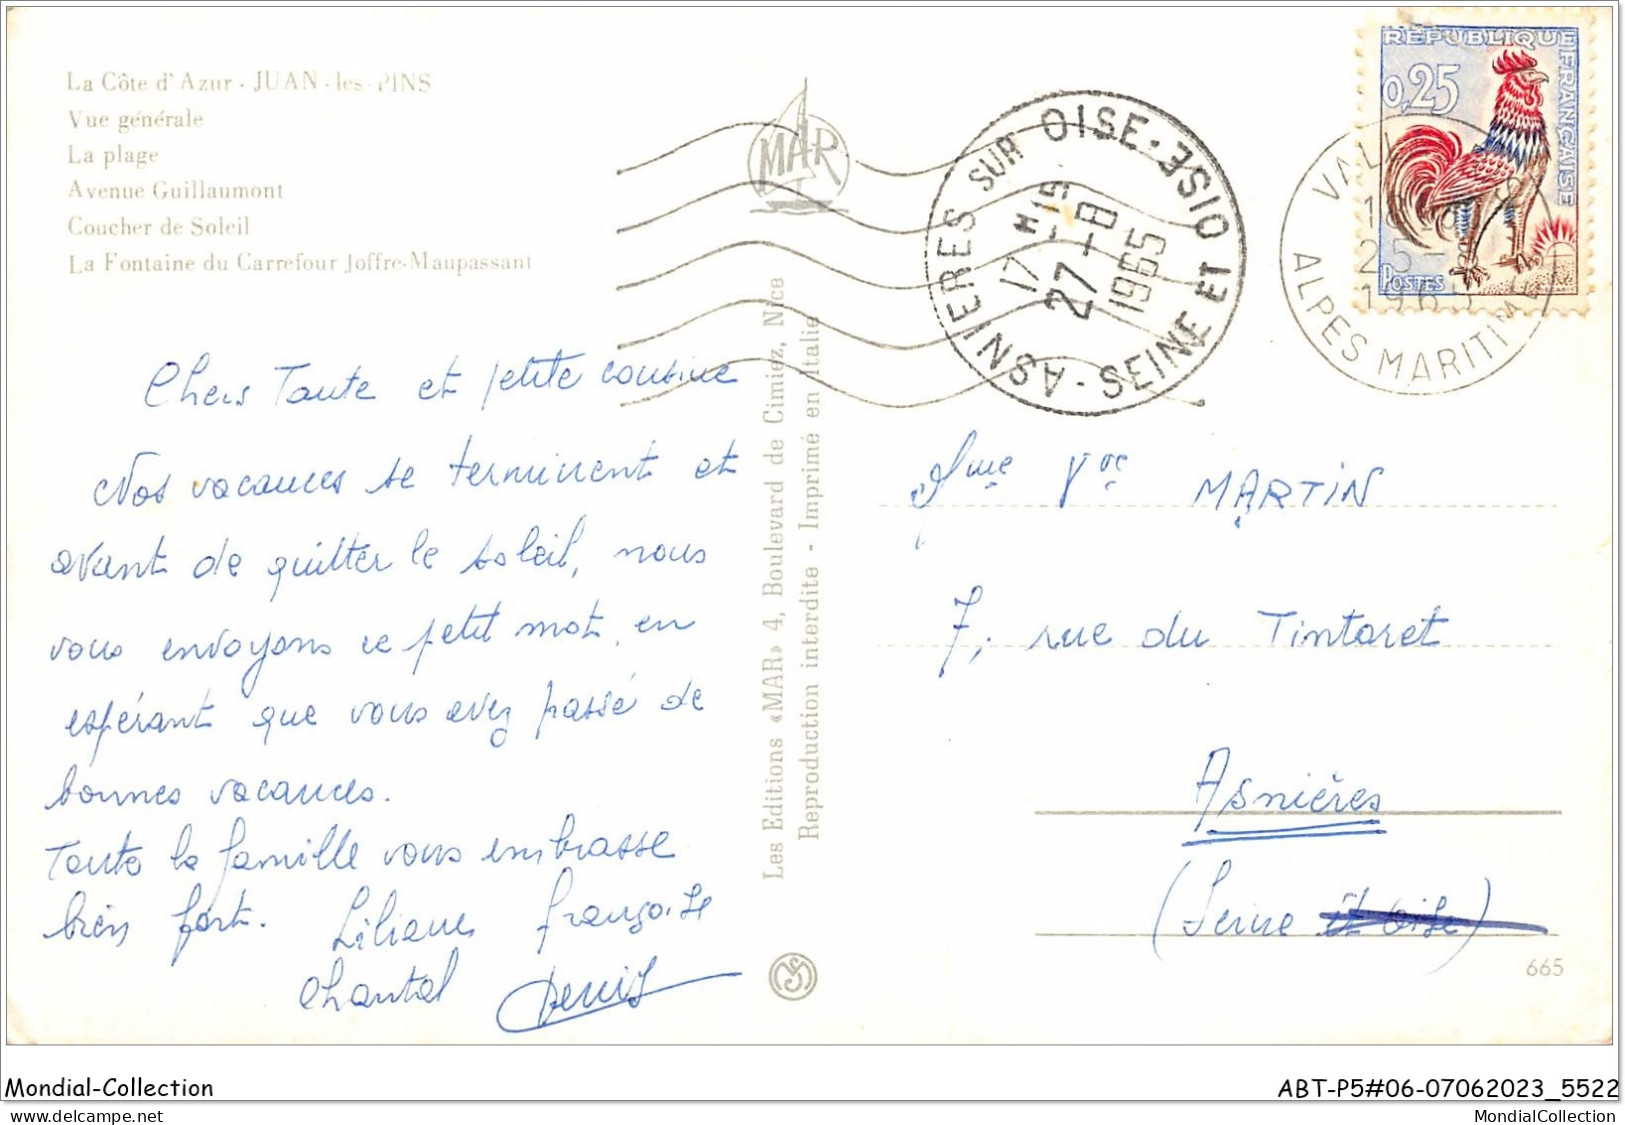 La Côte d'Azur - JUAN-les-PINS
Vue générale
La plage
Avenue Guillaumont
Coucher de Soleil
La Fontaine du Carrefour Joffre-Maupassant
MAR
ASNIERES SUR OISE - SEINE ET OISE
17 H 15
27-8
1965
REPUBLIQUE FRANÇAISE
0,25
POSTES
ALPES MARITIMES
25-
Chers Tante et petite cousine
Nos vacances se terminent et
avant de quitter le soleil, nous
vous envoyons ce petit mot, en
espérant que vous avez passé de
bonnes vacances.
Toute la famille vous embrasse
bien fort. Liliane Françoise
Chantal Denis
Les Editions «MAR» 4, Boulevard de Cimiez, Nice
Reproduction interdite - Imprimé en Italie
Mme Vve MARTIN
7, rue du Tintoret
Asnières
(Seine et Oise)
665
Mondial-Collection
ABT-P5#06-07062023_5522
MondialCollection